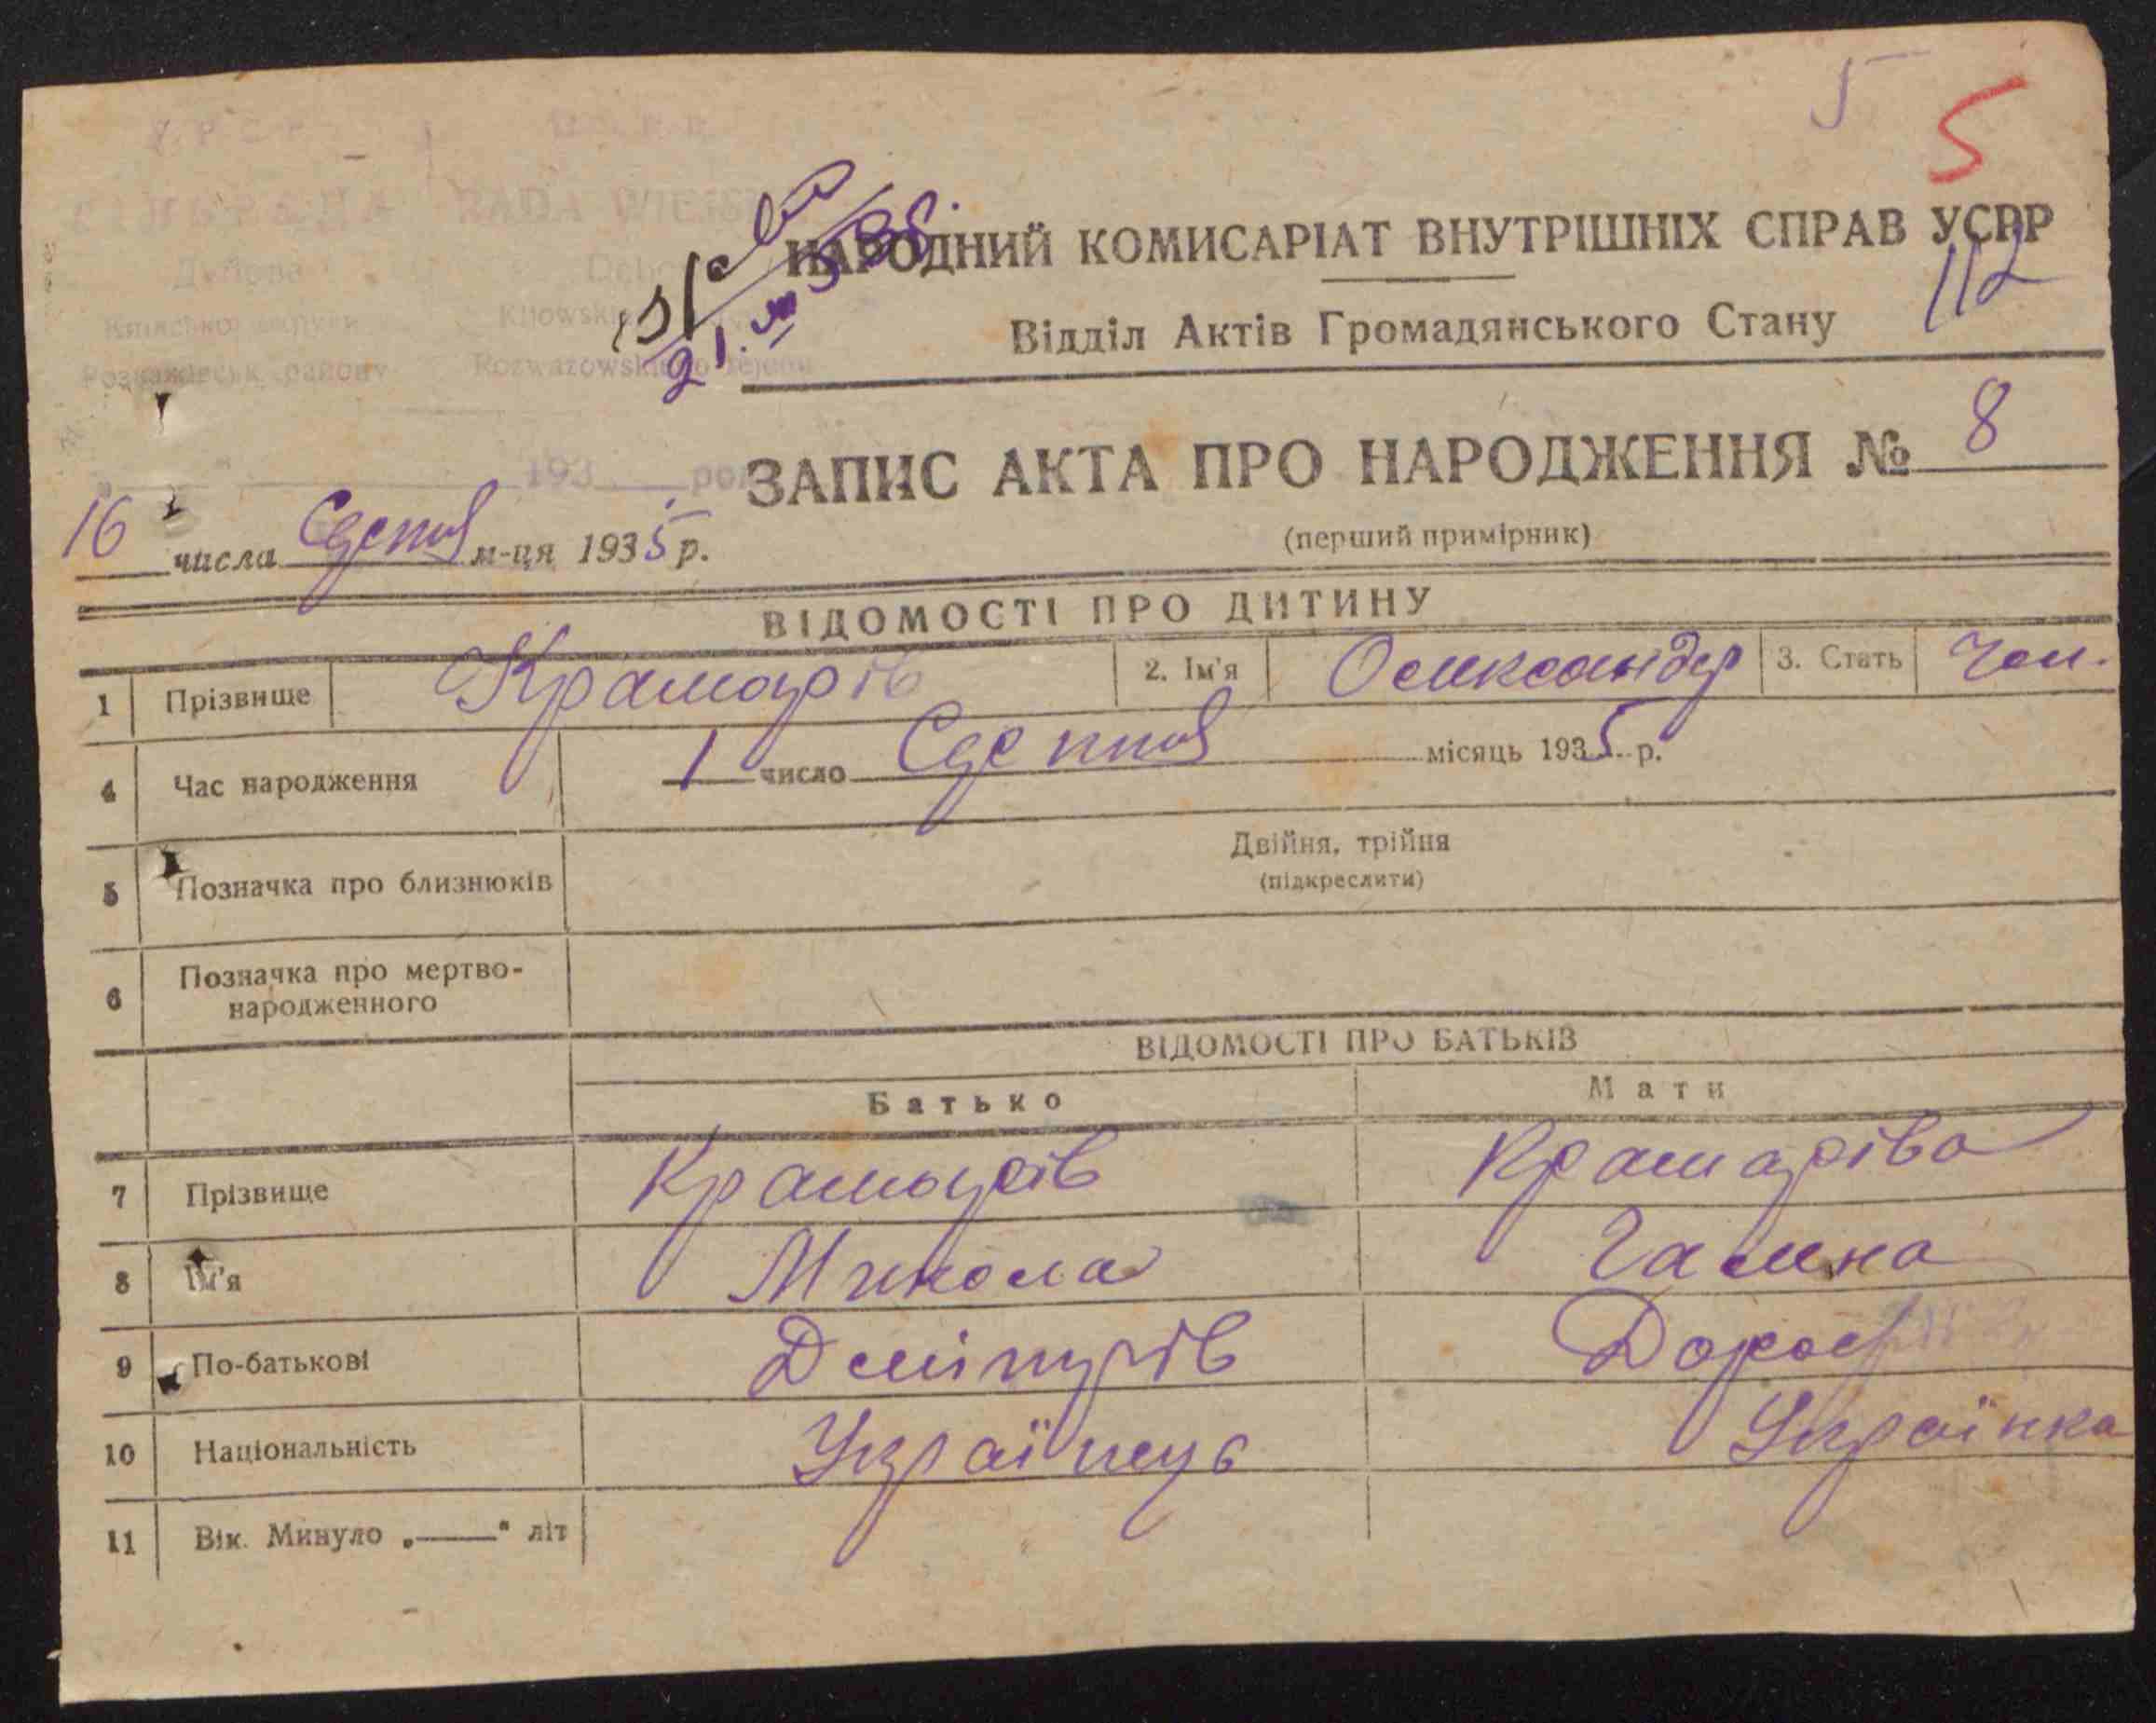 5
5
У.Р.С.Р.
СІЛЬРАДА RADA WIEJS
Київської округи Kijowski
Розважівськ. району Rozwazowskiego rejonu
193 ро
21.III 38.
НАРОДНИЙ КОМИСАРІАТ ВНУТРІШНІХ СПРАВ УСРР
112
Відділ Актів Громадянського Стану
ЗАПИС АКТА ПРО НАРОДЖЕННЯ № 8
(перший примірник)
16 числа Серпня м-ця 1935 р.
ВІДОМОСТІ ПРО ДИТИНУ
1 Прізвище Крамарів 2. Ім'я Олександер 3. Стать Чол.
4 Час народження 1 число Серпня місяць 1935 р.
5 Позначка про близнюків Двійня, трійня
(підкреслити)
6 Позначка про мертво-
народженного
ВІДОМОСТІ ПРО БАТЬКІВ
Батько Мати
7 Прізвище Крамарів Крамаріва
8 Ім'я Микола Галина
9 По-батькові Дмітрів
10 Національність Українець Українка
11 Вік. Минуло „——" літ